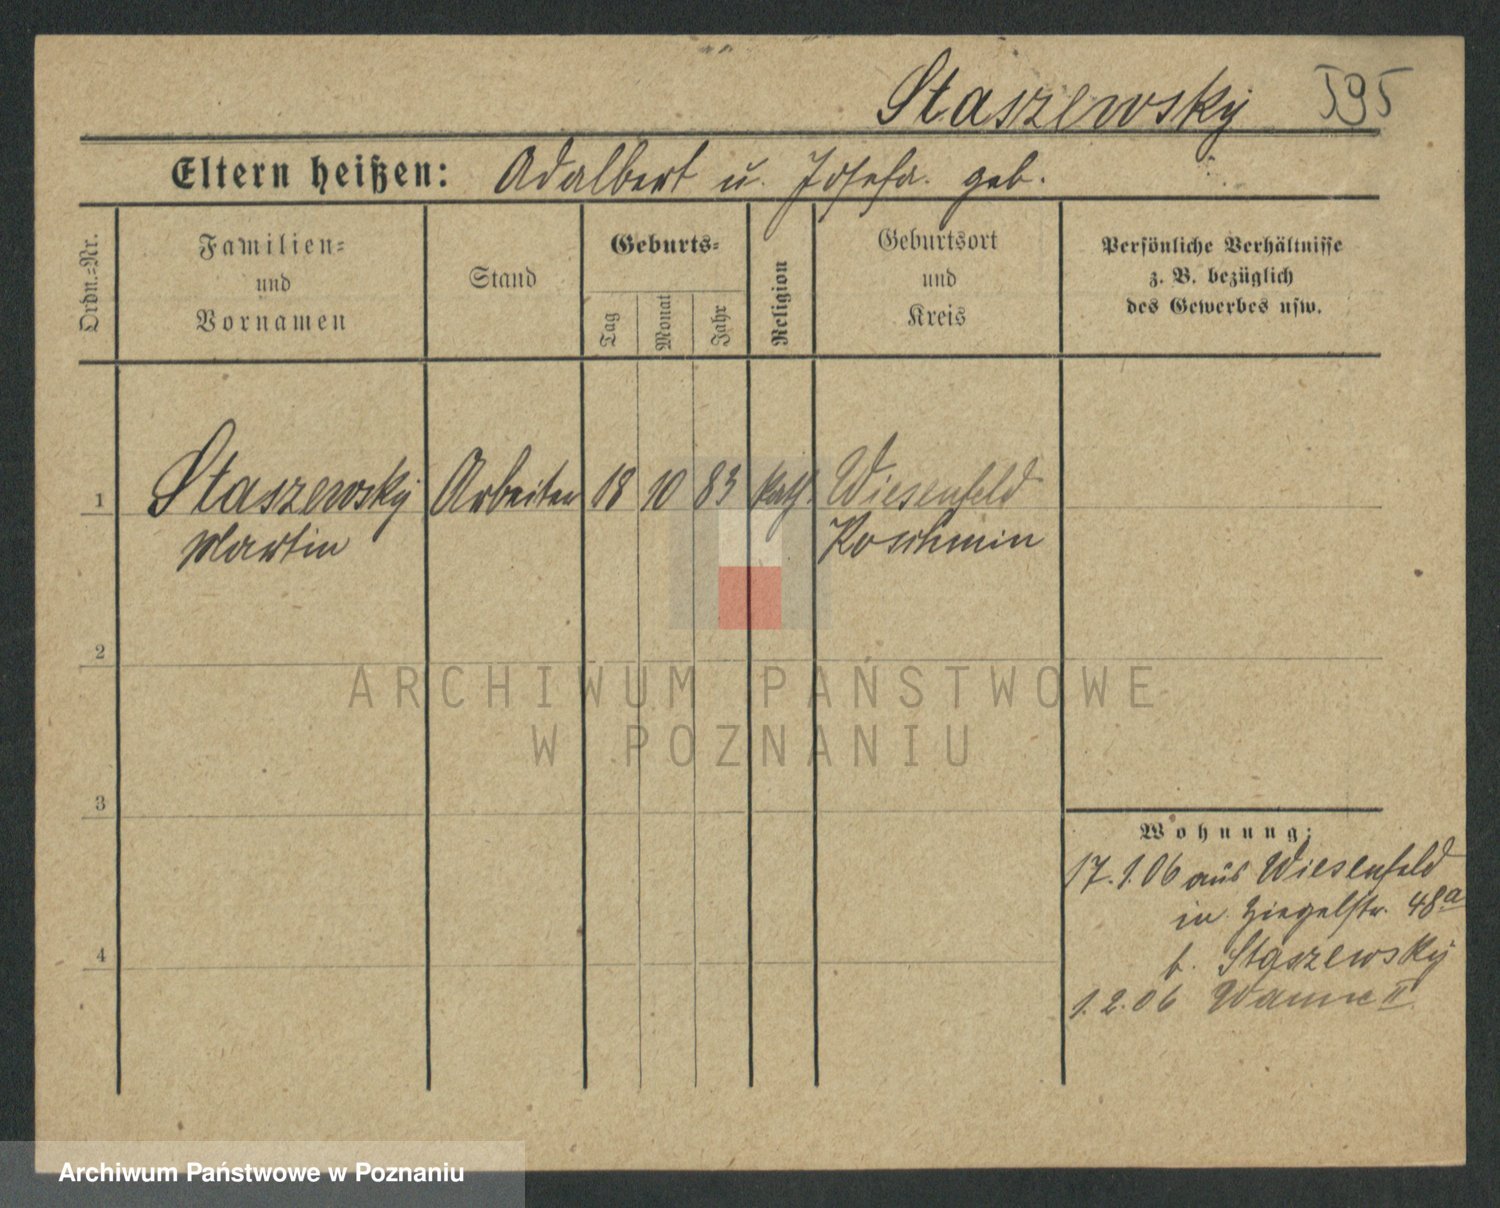 Staszewsky 595
Eltern heißen: Adalbert u. Josefa geb.
Ordn.=Nr.
Familien=
und
Vornamen
Stand
Geburts=
Tag
Monat
Jahr
Religion
Geburtsort
und
Kreis
Persönliche Verhältnisse
z. B. bezüglich
des Gewerbes usw.
1 Staszewsky Arbeiter 18 10 83 kath. Wiesenfeld
Martin Koschmin
2
ARCHIWUM PAŃSTWOWE
W POZNANIU
3
Wohnung:
17.1.06 aus Wiesenfeld
in Ziegelstr. 48a
b. Staszewsky
4
1.2.06 Wanne II
Archiwum Państwowe w Poznaniu